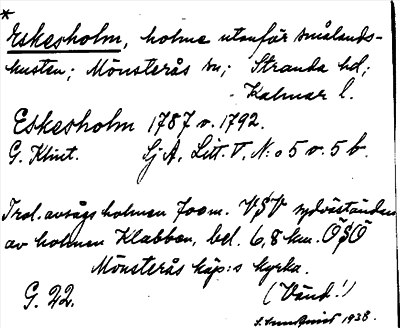 *
Eskesholm, holme utanför Smålands-
kusten; Mönsterås sn; Stranda hd;
Kalmar l.
Eskesholm 1787 o. 1792.
G. Klint. Sj A, Litt. V, N:o 5 o. 5 b.
Trol. avsågs holmen 700 m. VSV sydväständen
av holmen Klabben, bel. 6,8 km. ÖSÖ
Mönsterås köp:s kyrka.
G. 22. (Vänd!)
1938.